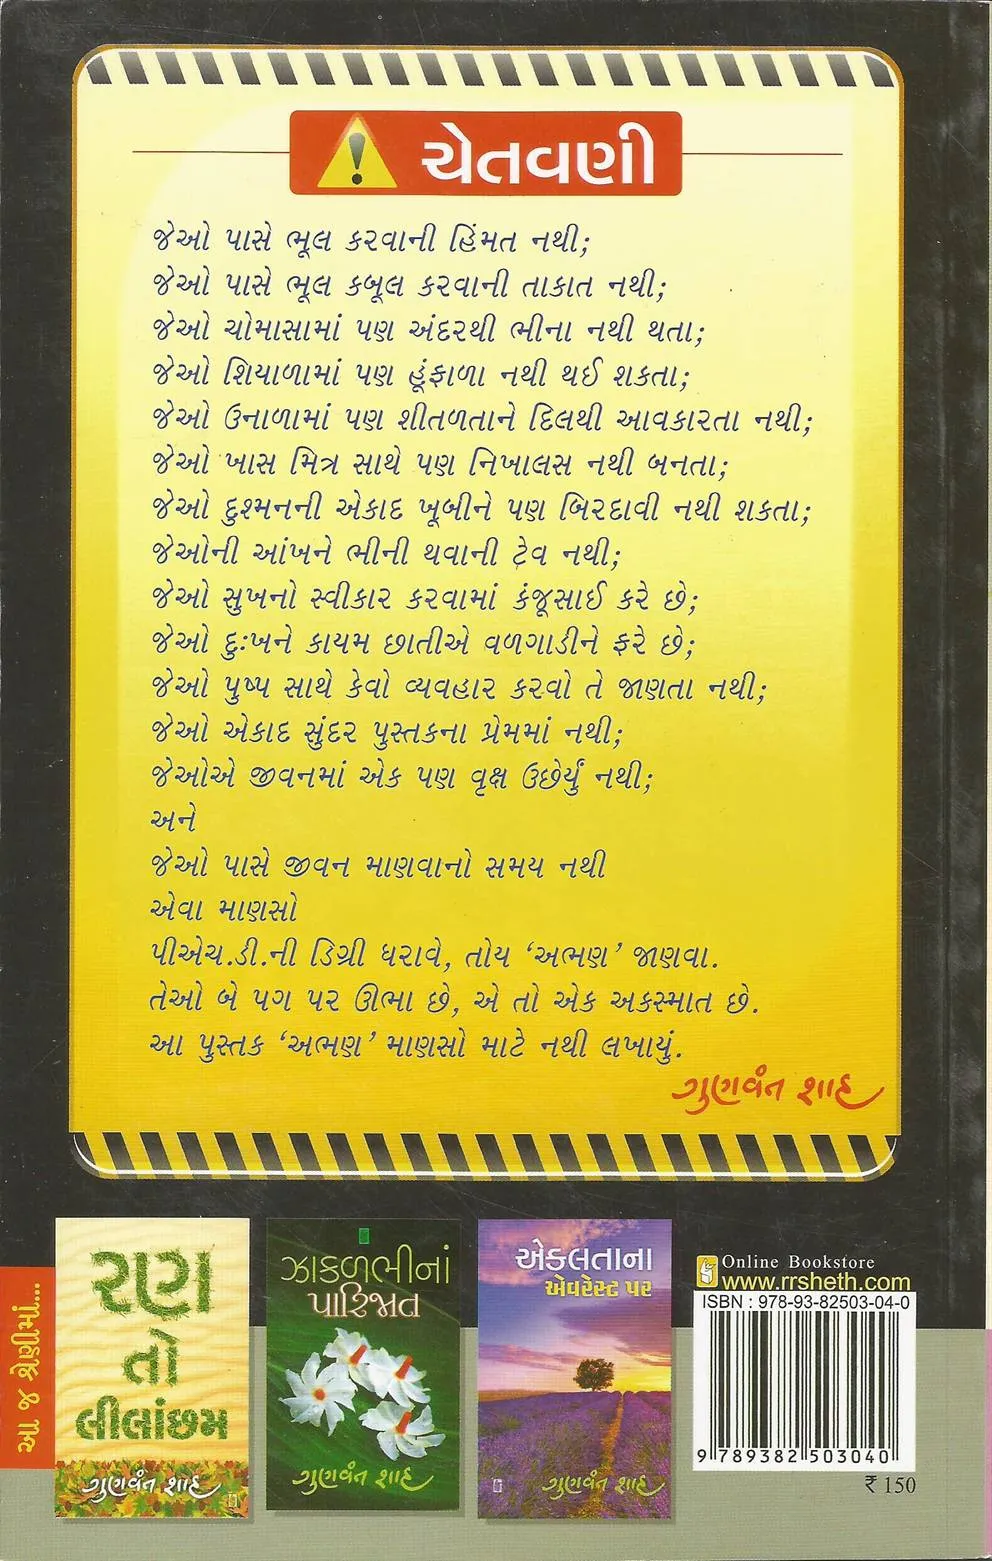 ચેતવણી
જેઓ પાસે ભૂલ કરવાની હિંમત નથી;
જેઓ પાસે ભૂલ કબૂલ કરવાની તાકાત નથી;
જેઓ ચોમાસામાં પણ અંદરથી ભીના નથી થતા;
જેઓ શિયાળામાં પણ હૂંફાળા નથી થઈ શકતા;
જેઓ ઉનાળામાં પણ શીતળતાને દિલથી આવકારતા નથી;
જેઓ ખાસ મિત્ર સાથે પણ નિખાલસ નથી બનતા;
જેઓ દુશ્મનની એકાદ ખૂબીને પણ બિરદાવી નથી શકતા;
જેઓની આંખને ભીની થવાની ટેવ નથી;
જેઓ સુખનો સ્વીકાર કરવામાં કંજૂસાઈ કરે છે;
જેઓ દુઃખને કાયમ છાતીએ વળગાડીને ફરે છે;
જેઓ પુષ્પ સાથે કેવો વ્યવહાર કરવો તે જાણતા નથી;
જેઓ એકાદ સુંદર પુસ્તકના પ્રેમમાં નથી;
જેઓએ જીવનમાં એક પણ વૃક્ષ ઉછેર્યું નથી;
અને
જેઓ પાસે જીવન માણવાનો સમય નથી
એવા માણસો
પીએચ.ડી.ની ડિગ્રી ધરાવે, તોય ‘અભણ’ જાણવા.
તેઓ બે પગ પર ઊભા છે, એ તો એક અકસ્માત છે.
આ પુસ્તક ‘અભણ’ માણસો માટે નથી લખાયું.
ગુણવંત શાહ
આ જ શ્રેણીમાં...
રણ
તો
લીલાંછમ
ગુણવંત શાહ
ઝાકળભીનાં
પારિજાત
ગુણવંત શાહ
એકલતાના
એવરેસ્ટ પર
ગુણવંત શાહ
Online Bookstore
www.rrsheth.com
ISBN : 978-93-82503-04-0
9 789382 503040
₹ 150